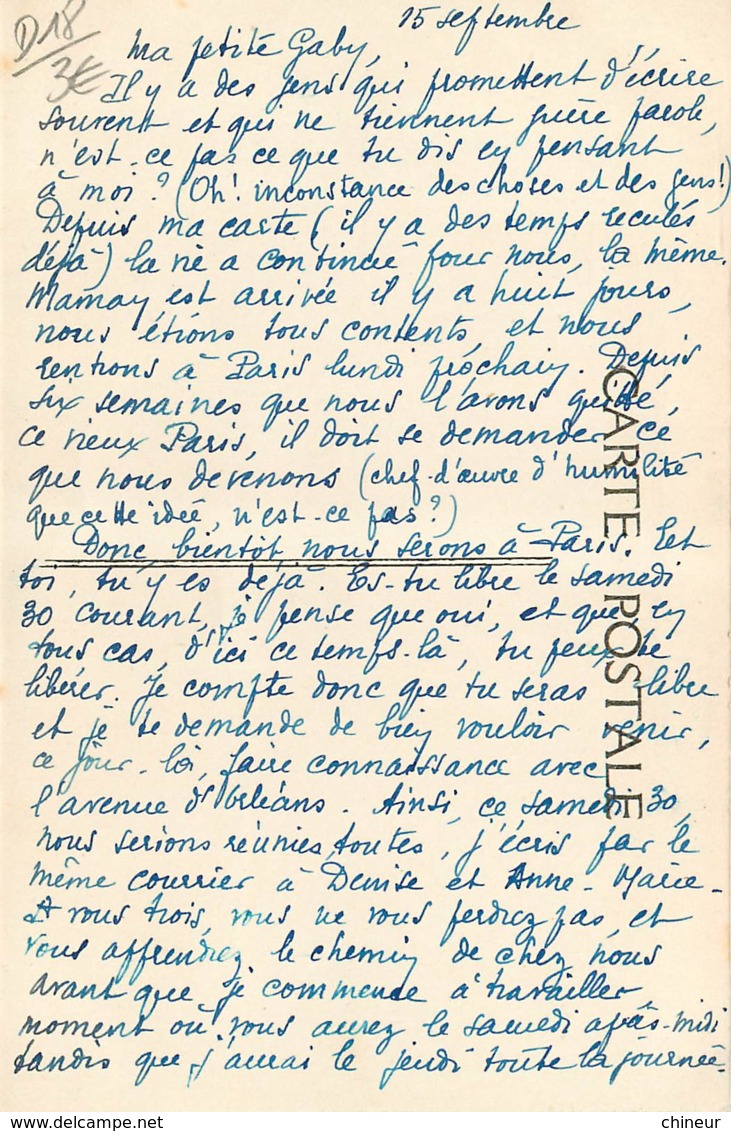 D18
3€
15 septembre
Ma petite Gaby,
Il y a des gens qui promettent d'écrire
souvent et qui ne tiennent guère parole,
n'est-ce pas ce que tu dis en pensant
à moi ? (Oh! inconstance des choses et des gens!)
Depuis ma carte (il y a des temps reculés
déjà) la vie a continué pour nous, la même.
Maman est arrivée il y a huit jours,
nous étions tous contents, et nous
rentrons à Paris lundi prochain. Depuis
six semaines que nous l'avons quitté,
ce vieux Paris, il doit se demander ce
que nous devenons (chef-d'œuvre d'humilité
que cette idée, n'est-ce pas ?)
Donc, bientôt nous serons à Paris. Et
toi, tu y es déjà. Es-tu libre le samedi
30 courant, je pense que oui, et que en
tous cas, d'ici ce temps-là, tu peux te
libérer. Je compte donc que tu seras libre
et je te demande de bien vouloir venir,
ce jour-là, faire connaissance avec
l'avenue d'Orléans. Ainsi, ce samedi 30,
nous serions réunies, toutes, j'écris par le
même courrier à Denise et Anne-Marie-
A vous trois, vous ne vous perdrez pas, et
vous apprendrez le chemin de chez nous
avant que je commence à travailler
moment où vous aurez le samedi après-midi
tandis que j'aurai le jeudi toute la journée.
CARTE POSTALE
chineur